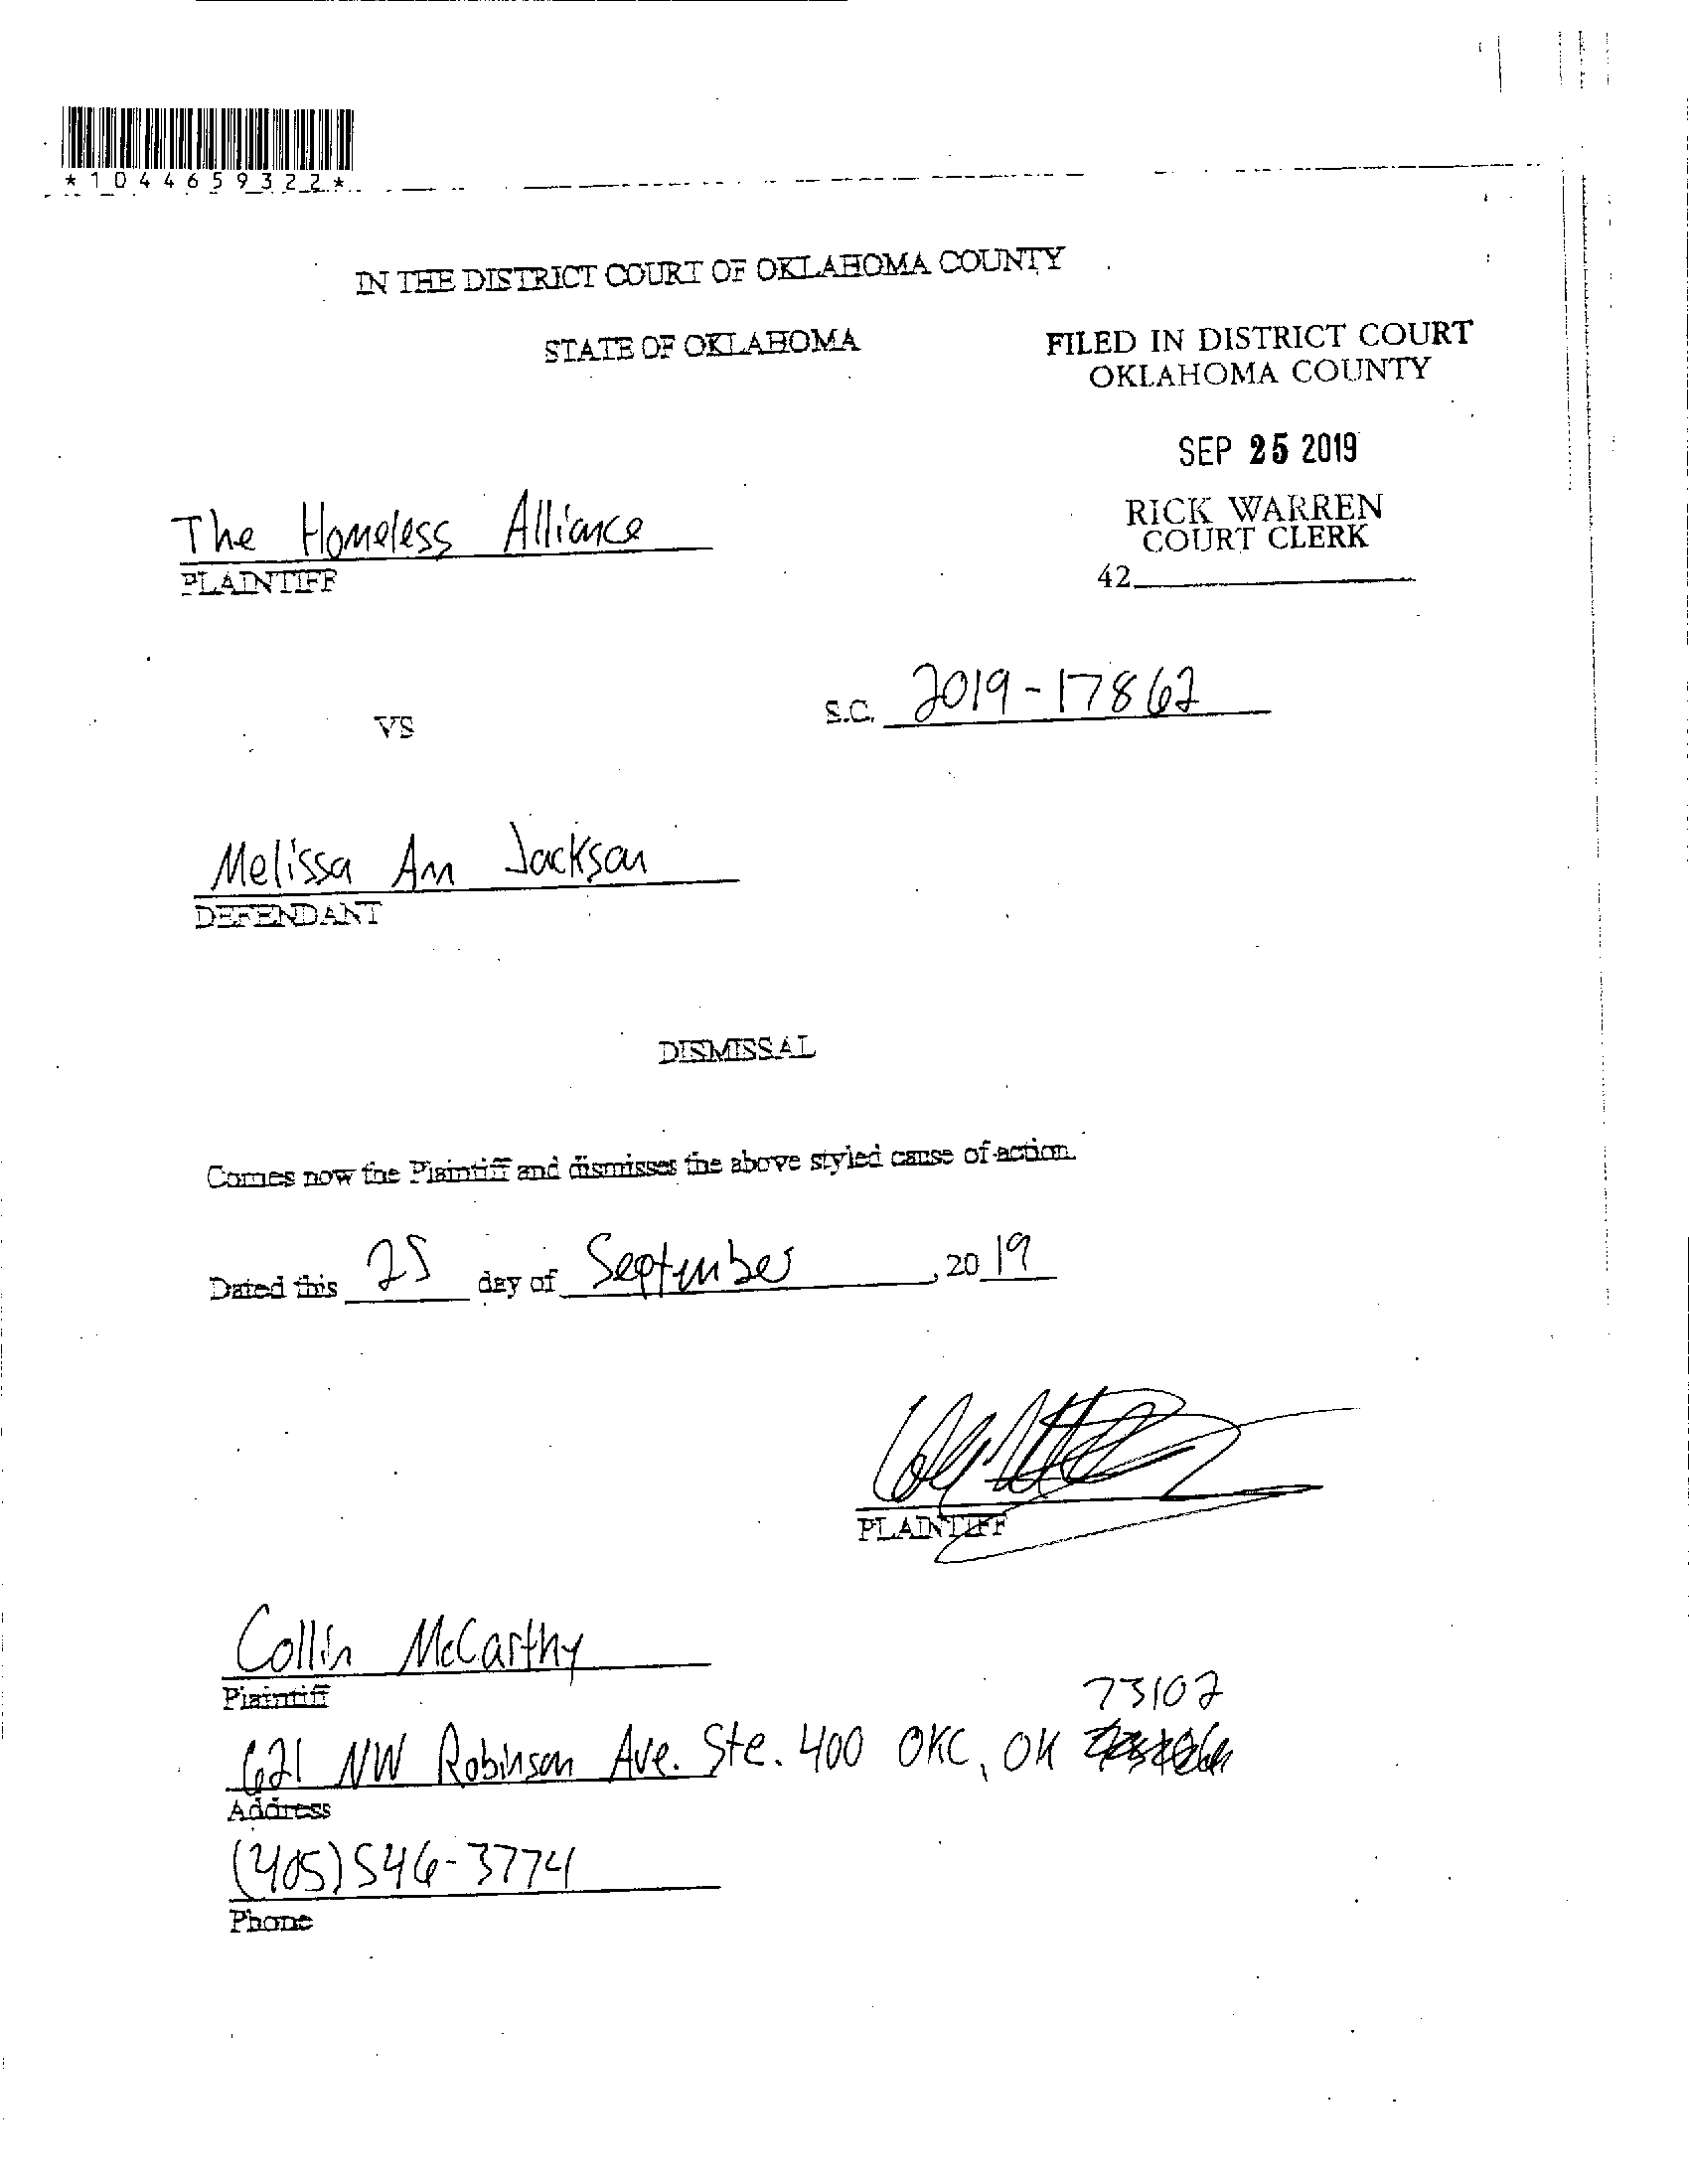 *1044659322*
IN THE DISTRICT COURT OF OKLAHOMA COUNTY
STATE OF OKLAHOMA
FILED IN DISTRICT COURT
OKLAHOMA COUNTY
SEP 25 2019
RICK WARREN
COURT CLERK
42
The Homeless Alliance
PLAINTIFF
VS
S.C. 2019-17862
Melissa Ann Jackson
DEFENDANT
DISMISSAL
Comes now the Plaintiff and dismisses the above styled cause of action.
Dated this 25 day of September, 2019
PLAINTIFF
Collin McCarthy
Plaintiff
73102
621 NW Robinson Ave. Ste. 400 OKC, OK
Address
(405)546-3774
Phone